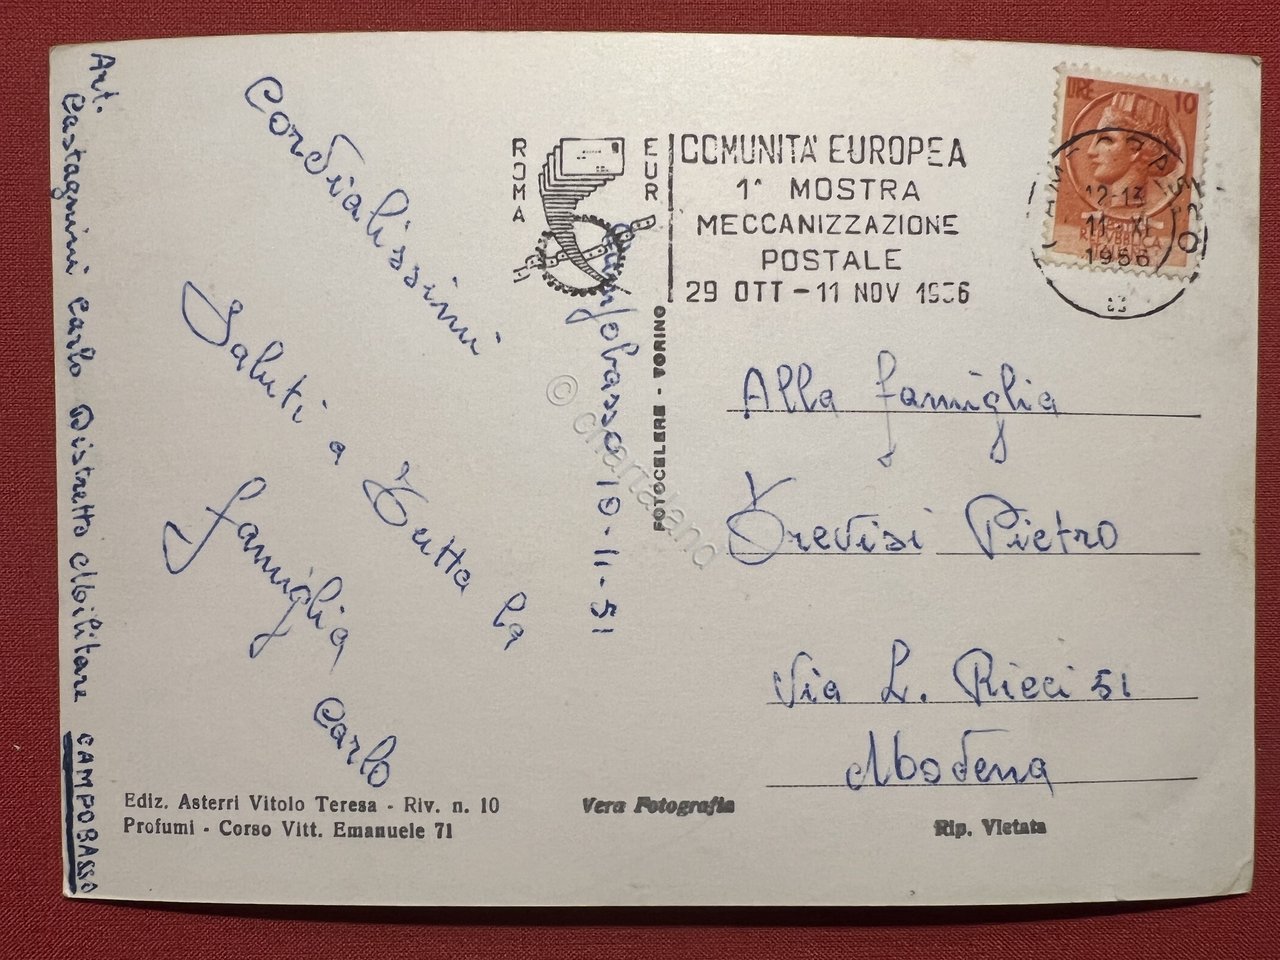 Art.
Castagnini Carlo Distretto Militare CAMPOBASSO
Cordialissimi
Saluti a Tutta la
famiglia
Carlo
Campobasso 10-11-51
ROMA
EUR
COMUNITA' EUROPEA
1ª MOSTRA
MECCANIZZAZIONE
POSTALE
29 OTT - 11 NOV 1956
LIRE 10
REPUBBLICA
CAMPOBASSO
12-13
11 XI
1956
Alla famiglia
Trevisi Pietro
Via L. Ricci 51
Modena
FOTOCELERE - TORINO
© chartaland
Ediz. Asterri Vitolo Teresa - Riv. n. 10
Profumi - Corso Vitt. Emanuele 71
Vera Fotografia
Rip. Vietata